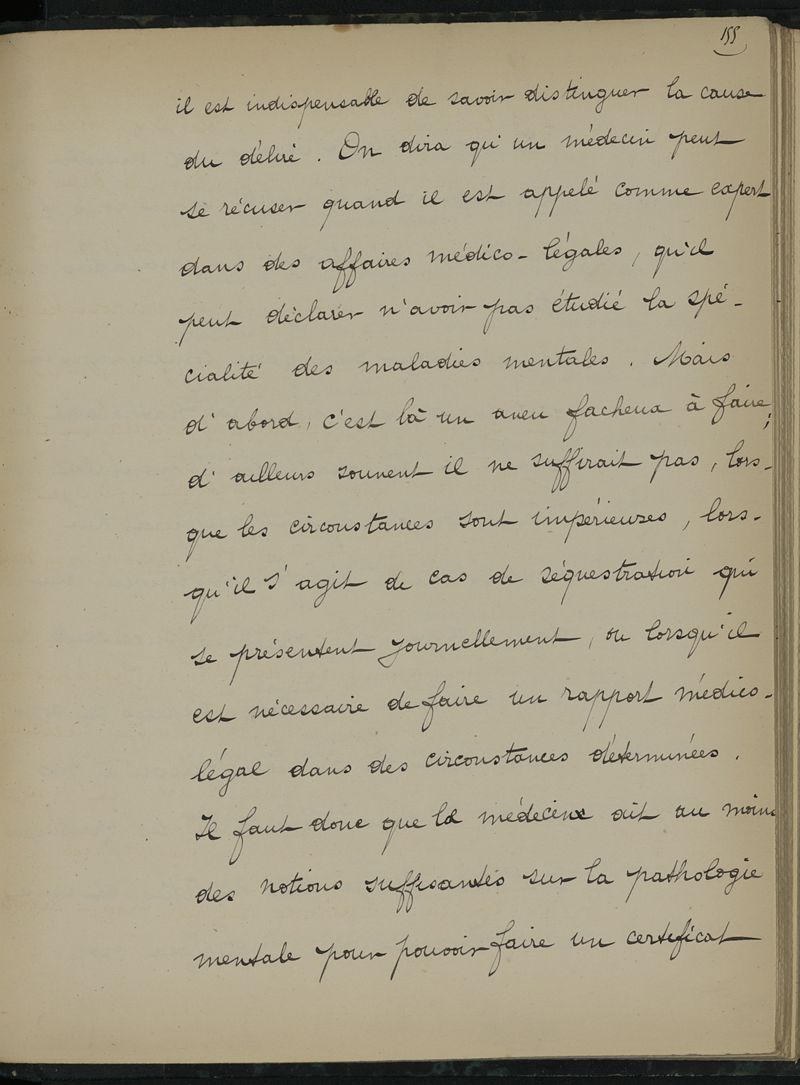 155
il est indispensable de savoir distinguer la cause
du délire. On dira qu'un médecin peut
se récuser quand il est appelé comme expert
dans des affaires médico-légales, qu'il
peut déclarer n'avoir pas étudié la spé-
cialité des maladies mentales. Mais
d'abord, c'est là un aveu facheux à faire;
d'ailleurs souvent il ne suffirait pas, lors-
que les circonstances sont impérieuses, lors-
qu'il s'agit de cas de séquestration qui
se présentent journellement, ou lorsqu'il
est nécessaire de faire un rapport médico-
légal dans des circonstances déterminées.
Il faut donc que le médecin ait au moins
des notions suffisantes sur la pathologie
mentale pour pouvoir faire un certificat